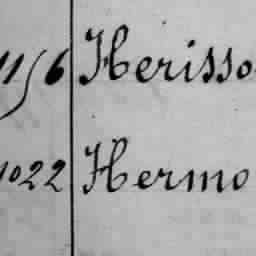 1156 Herisso
1022 Hermo